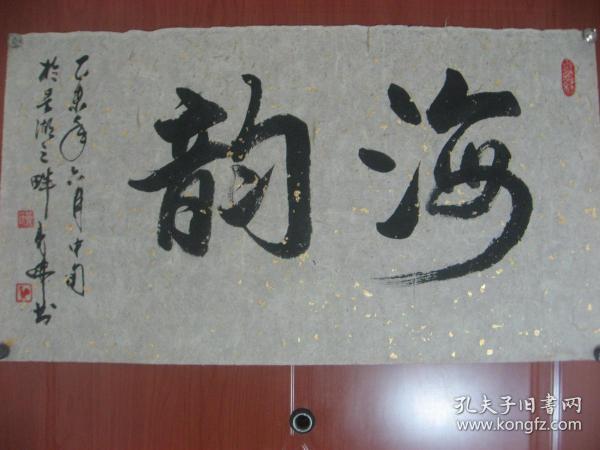 海韵
乙未年六月中旬
於景湖之畔
书
孔夫子旧書网
www.kongfz.com